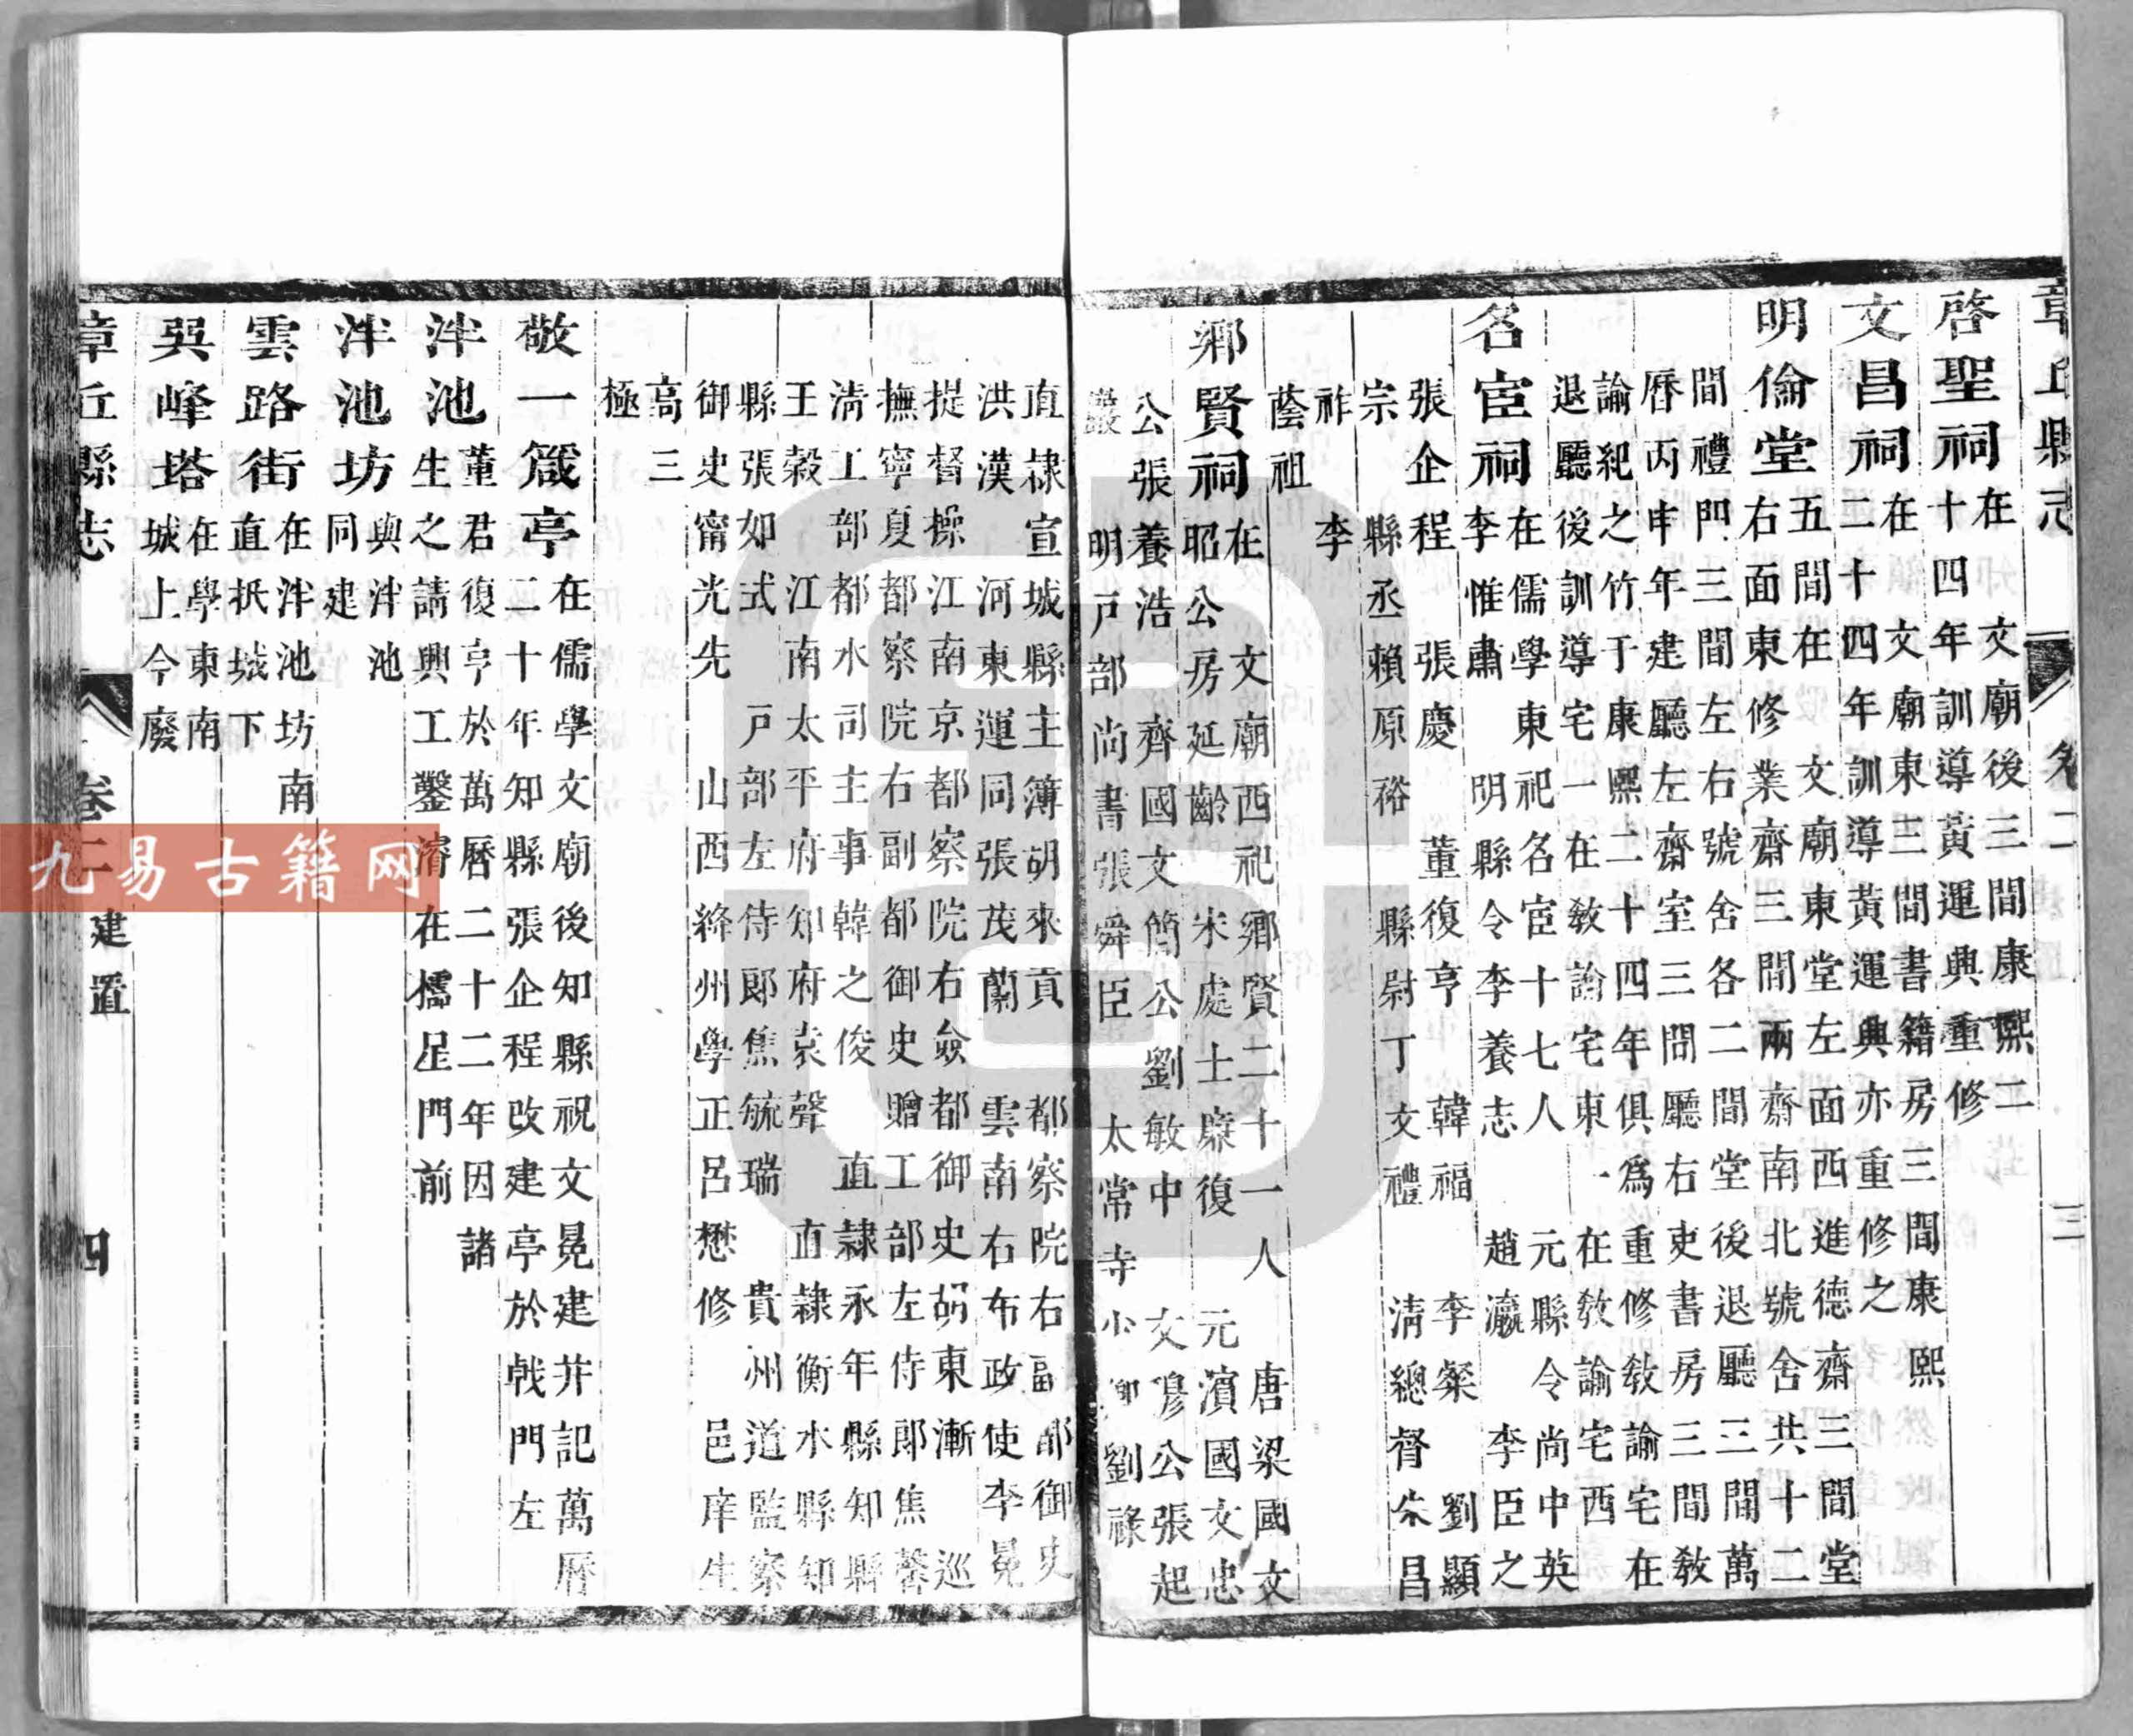 章丘縣志 卷二 三
啓聖祠在文廟後三間康熙二
十四年訓導黃運典重修
文昌祠在文廟東三間書籍房三間康熙
二十四年訓導黃運典亦重修之
明倫堂五間在文廟東堂左面西進德齋三間堂
右面東修業齋三間兩齋南北號舍共十二
間禮門三間左右號舍各二間堂後退廳三間萬
曆丙申年建廳左齋室三間廳右吏書房三間教
諭紀之竹于康熙二十四年俱爲重修教諭宅在
退廳後訓導宅一在教諭宅東一在教諭宅西
名宦祠在儒學東祀名宦十七人元縣令尚中英
李惟肅明縣令李養志趙瀛李臣之
張企程張慶董復亨韓福李粲劉顯
宗縣丞賴原裕縣尉丁文禮淸總督朱昌
祚李
蔭祖
鄉賢祠在文廟西祀鄉賢二十一人唐梁國文
昭公房延齡宋處士廉復元濱國文忠
公張養浩齊國文簡公劉敏中文穆公張起
巖明戸部尚書張舜臣太常寺少卿劉祿
直隷宣城縣主簿胡來貢都察院右副都御史
洪漢河東運同張茂蘭雲南右布政使李冕
提督操江南京都察院右僉都御史胡東漸巡
撫寧夏都察院右副都御史贈工部左侍郎焦馨
淸工部都水司主事韓之俊直隷永年縣知縣
王穀江南太平府知府袁聲直隷衡水縣知
縣張如式戸部左侍郎焦毓瑞貴州道監察
御史甯光先山西絳州學正呂懋修邑庠生
高三
極
敬一箴亭在儒學文廟後知縣祝文冕建并記萬曆
二十年知縣張企程改建亭於戟門左
泮池董君復亨於萬曆二十二年因諸
生之請興工鑿濬在櫺星門前
泮池坊與泮池
同建
雲路街在泮池坊南
直抵城下
吳峰塔在學東南
城上今廢
章丘縣志 卷二 建置 四
九易古籍网